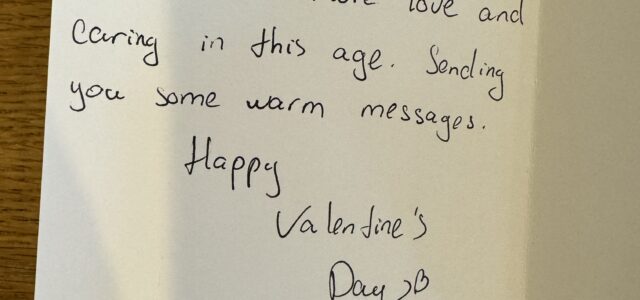 love and
caring in this age. Sending
you some warm messages.
Happy
Valentine's
Day